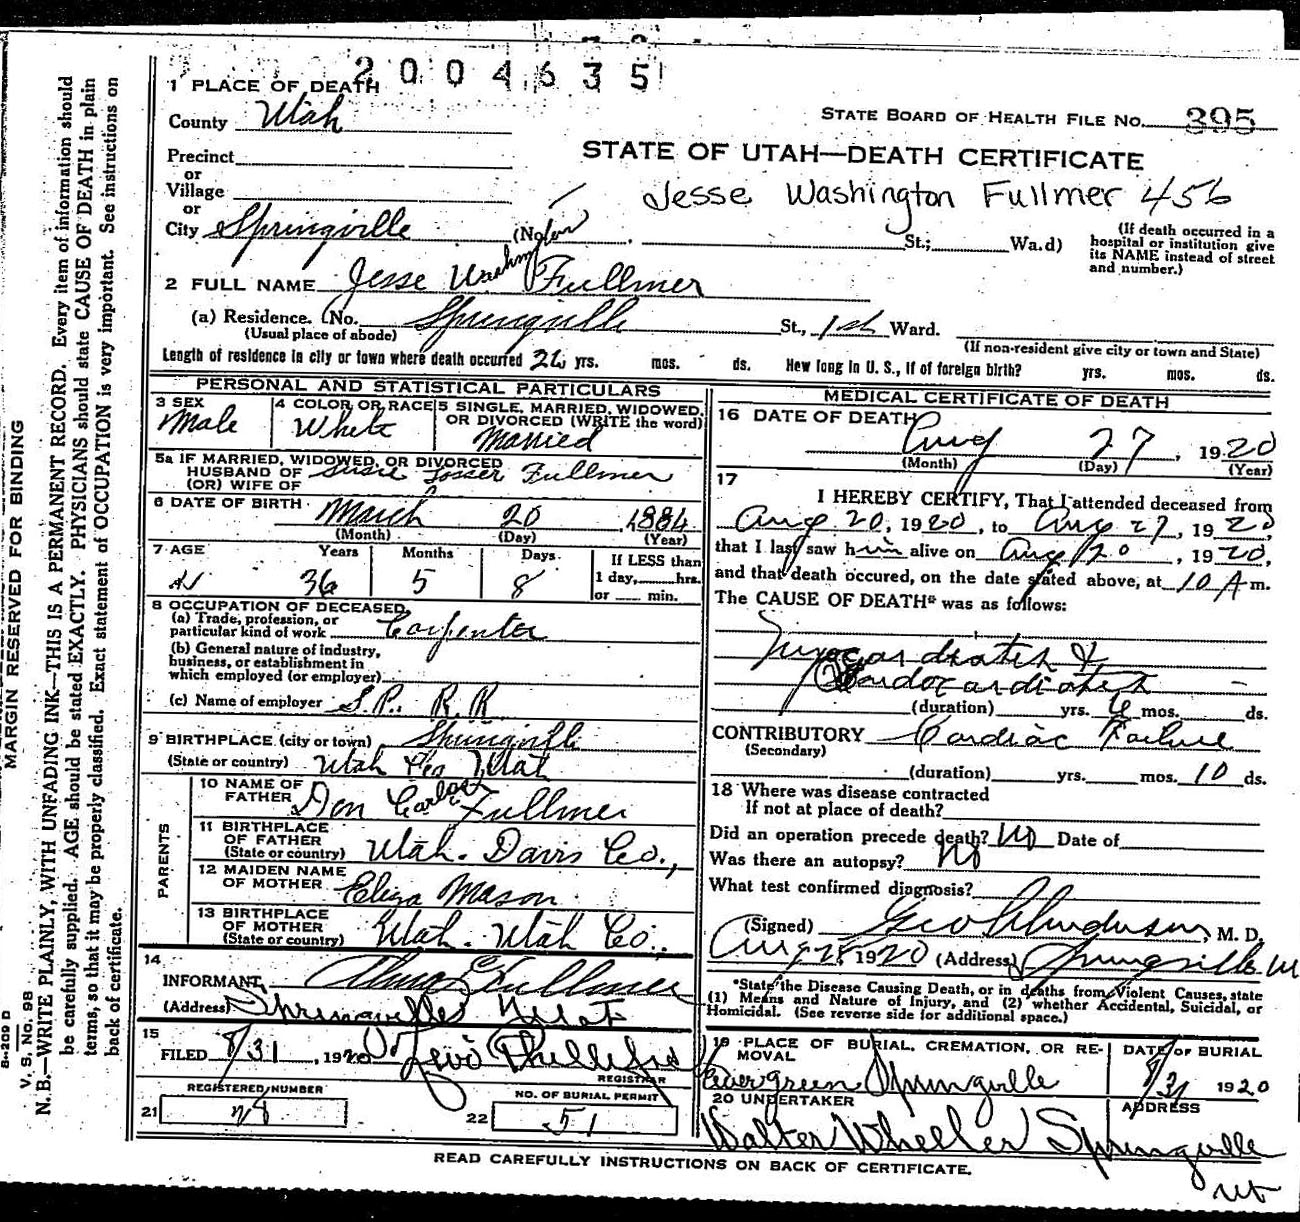 2004635
1 PLACE OF DEATH
County Utah
STATE BOARD OF HEALTH FILE NO. 395
Precinct
or
Village
or
City Springville (No. St.; Wa.d)
STATE OF UTAH—DEATH CERTIFICATE
Jesse Washington Fullmer 456
(If death occurred in a
hospital or institution give
its NAME instead of street
and number.)
2 FULL NAME Jesse Washington Fullmer
(a) Residence. (No. Springville St., 1st Ward.
(Usual place of abode)
(If non-resident give city or town and State)
Length of residence in city or town where death occurred 26 yrs. mos. ds. How long in U. S., if of foreign birth? yrs. mos. ds.
PERSONAL AND STATISTICAL PARTICULARS
3 SEX
Male
4 COLOR OR RACE
White
5 SINGLE, MARRIED, WIDOWED,
OR DIVORCED (WRITE the word)
Married
5a IF MARRIED, WIDOWED, OR DIVORCED
HUSBAND OF Susie Fullmer
(OR) WIFE OF
6 DATE OF BIRTH March 20, 1884
(Month) (Day) (Year)
7 AGE Years Months Days
36 5 8
If LESS than
1 day, hrs.
or min.
8 OCCUPATION OF DECEASED
(a) Trade, profession, or
particular kind of work Carpenter
(b) General nature of industry,
business, or establishment in
which employed (or employer)
(c) Name of employer S. P. R. R
9 BIRTHPLACE (city or town) Springville
(State or country) Utah Co Utah
PARENTS
10 NAME OF
FATHER Don Carlos Fullmer
11 BIRTHPLACE
OF FATHER
(State or country) Utah. Davis Co.,
12 MAIDEN NAME
OF MOTHER Eliza Mason
13 BIRTHPLACE
OF MOTHER
(State or country) Utah. Utah Co.,
14
INFORMANT Fullmer
(Address) Springville Utah
15
FILED 8/31, 1920
REGISTRAR
REGISTERED NUMBER
21
NO. OF BURIAL PERMIT
22 51
MEDICAL CERTIFICATE OF DEATH
16 DATE OF DEATH
Aug 27, 1920
(Month) (Day) (Year)
17
I HEREBY CERTIFY, That I attended deceased from
Aug 20, 1920, to Aug 27, 1920,
that I last saw him alive on Aug 20, 1920,
and that death occured, on the date stated above, at 10 A m.
The CAUSE OF DEATH* was as follows:
(duration) yrs. 6 mos. ds.
CONTRIBUTORY Cardiac Failure
(Secondary)
(duration) yrs. mos. 10 ds.
18 Where was disease contracted
If not at place of death?
Did an operation precede death? No Date of
Was there an autopsy? No
What test confirmed diagnosis?
(Signed) Geo Anderson, M. D.
Aug 28, 1920 (Address) Springville
*State the Disease Causing Death, or in deaths from Violent Causes, state
(1) Means and Nature of Injury, and (2) whether Accidental, Suicidal, or
Homicidal. (See reverse side for additional space.)
19 PLACE OF BURIAL, CREMATION, OR RE-
MOVAL
Evergreen Springville
DATE of BURIAL
8/31 1920
20 UNDERTAKER
ADDRESS
Walter Wheeler Springville
Ut
READ CAREFULLY INSTRUCTIONS ON BACK OF CERTIFICATE.
MARGIN RESERVED FOR BINDING
N.B.—WRITE PLAINLY, WITH UNFADING INK—THIS IS A PERMANENT RECORD. Every item of information should
be carefully supplied. AGE should be stated EXACTLY. PHYSICIANS should state CAUSE OF DEATH in plain
terms, so that it may be properly classified. Exact statement of OCCUPATION is very important. See instructions on
back of certificate.
V. S. No. 98